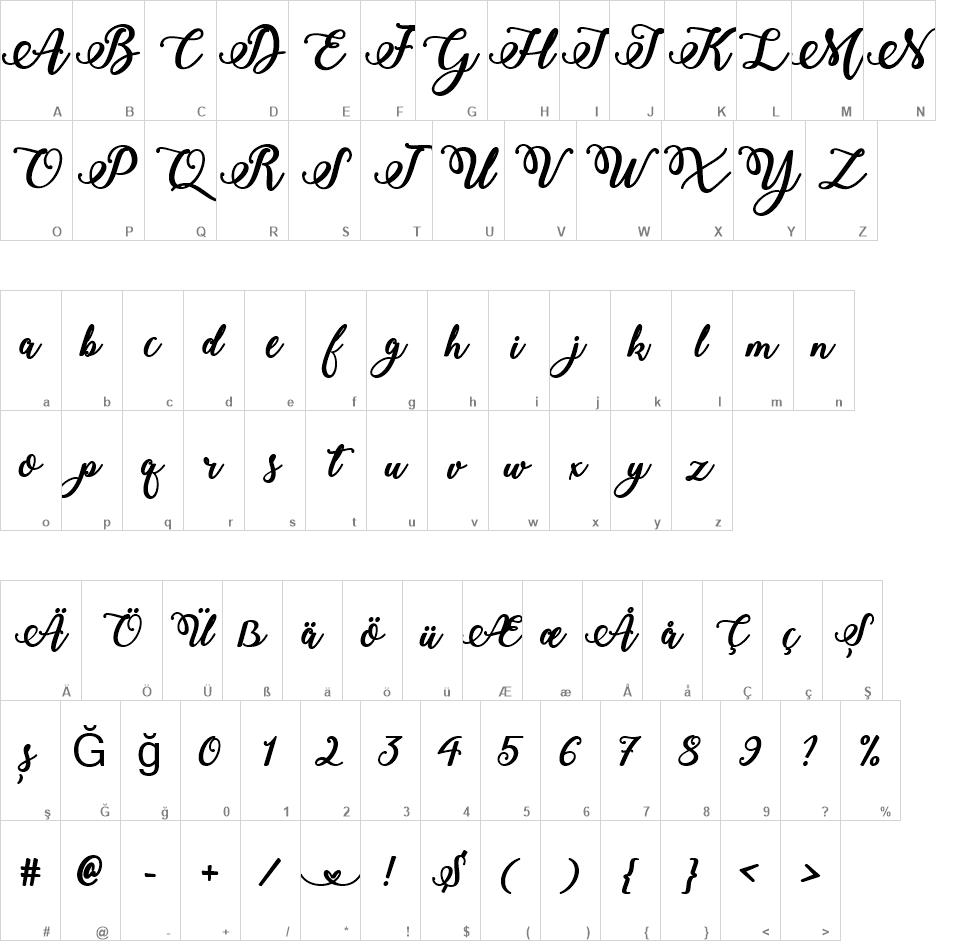 A B C D E F G H I J K L M N
A B C D E F G H I J K L M N
O P Q R S T U V W X Y Z
O P Q R S T U V W X Y Z
a b c d e f g h i j k l m n
a b c d e f g h i j k l m n
o p q r s t u v w x y z
o p q r s t u v w x y z
Ä Ö Ü ß ä ö ü Æ æ Å å Ç ç Ş
Ä Ö Ü ß ä ö ü Æ æ Å å Ç ç Ş
ş Ğ ğ 0 1 2 3 4 5 6 7 8 9 ? %
ş Ğ ğ 0 1 2 3 4 5 6 7 8 9 ? %
# @ - + / ! $ ( ) { } < >
# @ - + / * ! $ ( ) { } < >